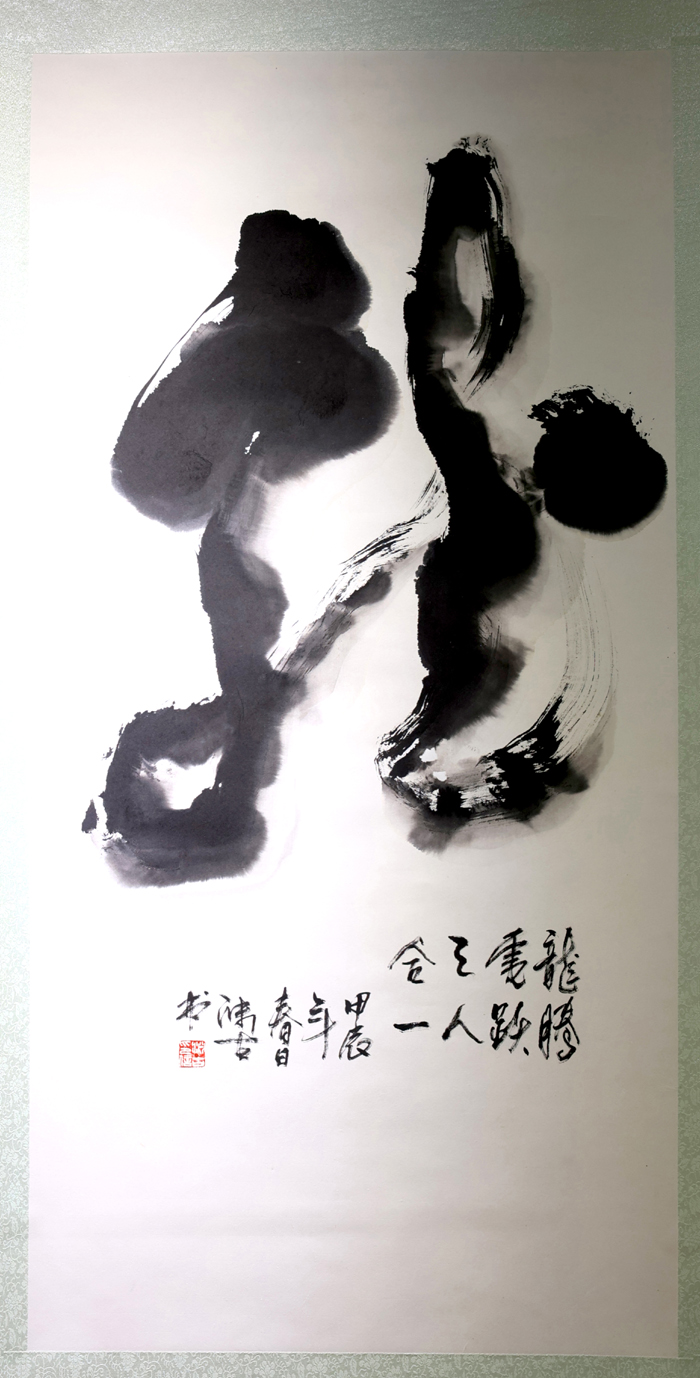 龍騰
虎跃
天人
合一
甲辰
年
春日
古
书